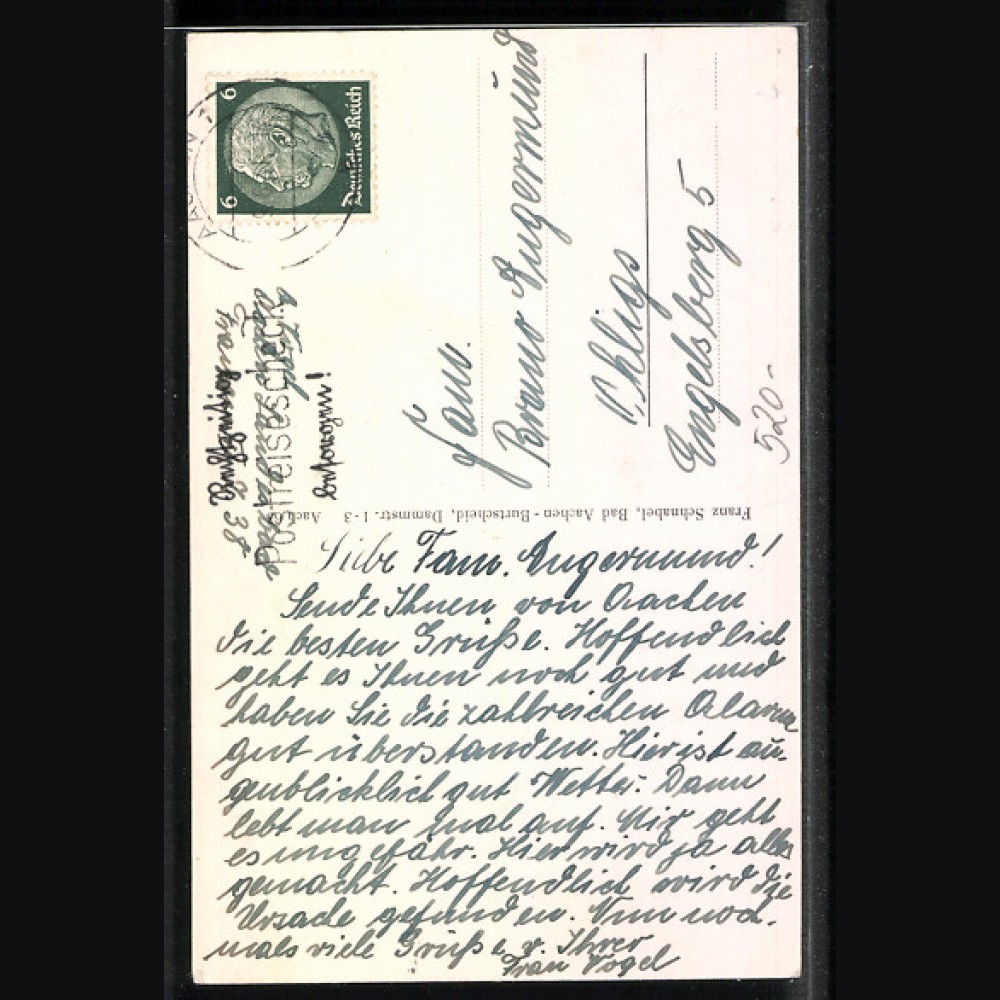 Liebe Fam. Angermund!
Sende Ihnen von Aachen
die besten Grüße. Hoffendlich
geht es Ihnen noch gut und
haben Sie die zahlreichen Alarme
gut überstanden. Hier ist au-
genblicklich gut Wetter. Dann
lebt man mal auf. Mir geht
es ungefähr. Hier wird ja alles
gemacht. Hoffendlich wird die
Ursache gefunden. Nun noch-
mals viele Grüße v. Ihrer
Frau Vogel
Fam.
Bruno Angermund
Ohligs
Engelsberg 5
520-
Franz Schnabel, Bad Aachen-Burtscheid, Dammstr. 1-3 Aach
Deutsches Reich
6 6
Postreisescheck